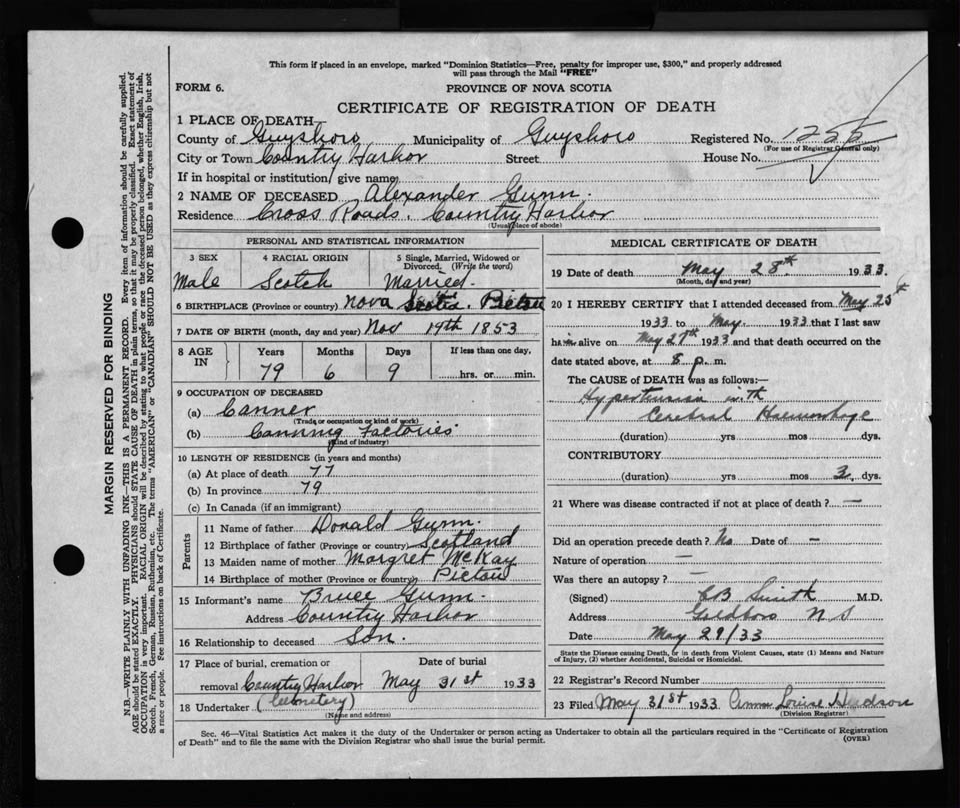 This form if placed in an envelope, marked "Dominion Statistics—Free, penalty for improper use, $300," and properly addressed
will pass through the Mail "FREE"
FORM 6.
PROVINCE OF NOVA SCOTIA
CERTIFICATE OF REGISTRATION OF DEATH
1 PLACE OF DEATH
County of Guysboro Municipality of Guysboro Registered No.
(For use of Registrar General only)
City or Town Country Harbor Street House No.
If in hospital or institution, give name
2 NAME OF DECEASED Alexander Gunn.
Residence Cross Roads. Country Harbor
(Usual place of abode)
PERSONAL AND STATISTICAL INFORMATION
3 SEX 4 RACIAL ORIGIN 5 Single, Married, Widowed or
Divorced. (Write the word)
Male Scotch Married.
6 BIRTHPLACE (Province or country) Nova Scotia. Pictou
7 DATE OF BIRTH (month, day and year) Nov 19th 1853
8 AGE IN Years Months Days If less than one day,
79 6 9 hrs. or min.
9 OCCUPATION OF DECEASED
(a) Canner
(Trade or occupation or kind of work)
(b) Canning Factories
(Kind of industry)
10 LENGTH OF RESIDENCE (in years and months)
(a) At place of death 77
(b) In province 79
(c) In Canada (if an immigrant)
Parents
11 Name of father Donald Gunn.
12 Birthplace of father (Province or country) Scotland
13 Maiden name of mother Margret McKay
14 Birthplace of mother (Province or country) Pictou
15 Informant's name Bruce Gunn.
Address Country Harbor
16 Relationship to deceased Son.
17 Place of burial, cremation or Date of burial
removal Country Harbor May 31st 1933
(Cemetery)
18 Undertaker
(Name and address)
MEDICAL CERTIFICATE OF DEATH
19 Date of death May 28th 1933.
(Month, day and year)
20 I HEREBY CERTIFY that I attended deceased from May 25th
1933 to May. 1933 that I last saw
him alive on May 27th 1933 and that death occurred on the
date stated above, at 8 p. m.
The CAUSE of DEATH was as follows:—
Hypertension with
Cerebral Haemorrhage
(duration) yrs mos dys.
CONTRIBUTORY
(duration) yrs. mos 3 dys.
21 Where was disease contracted if not at place of death? —
Did an operation precede death? No Date of —
Nature of operation —
Was there an autopsy? —
(Signed) CB Smith M.D.
Address Goldboro N S
Date May 29/33
State the Disease causing Death, or in death from Violent Causes, state (1) Means and Nature
of Injury, (2) whether Accidental, Suicidal or Homicidal.
22 Registrar's Record Number
23 Filed May 31st 1933 Louise Hudson
(Division Registrar)
Sec. 46—Vital Statistics Act makes it the duty of the Undertaker or person acting as Undertaker to obtain all the particulars required in the "Certificate of Registration
of Death" and to file the same with the Division Registrar who shall issue the burial permit.
(OVER)
MARGIN RESERVED FOR BINDING
N.B.—WRITE PLAINLY WITH UNFADING INK—THIS IS A PERMANENT RECORD. Every item of information should be carefully supplied.
AGE should be stated EXACTLY. PHYSICIANS should STATE CAUSE OF DEATH in plain terms, so that it may be properly classified. Exact statement of
OCCUPATION is very important. RACIAL ORIGIN will be described by stating to what people or race the deceased person belonged, whether English, Irish,
Scotch, French, German, Russian, Ruthenian, etc. The terms "AMERICAN" or "CANADIAN" SHOULD NOT BE USED as they express citizenship but not
a race or people. Fee instructions on back of Certificate.